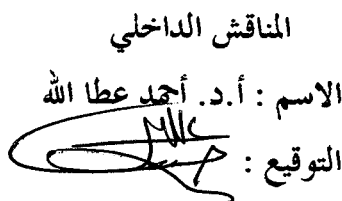 المناقش الداخلي
الاسم : أ.د. أحمد عطا الله
التوقيع :